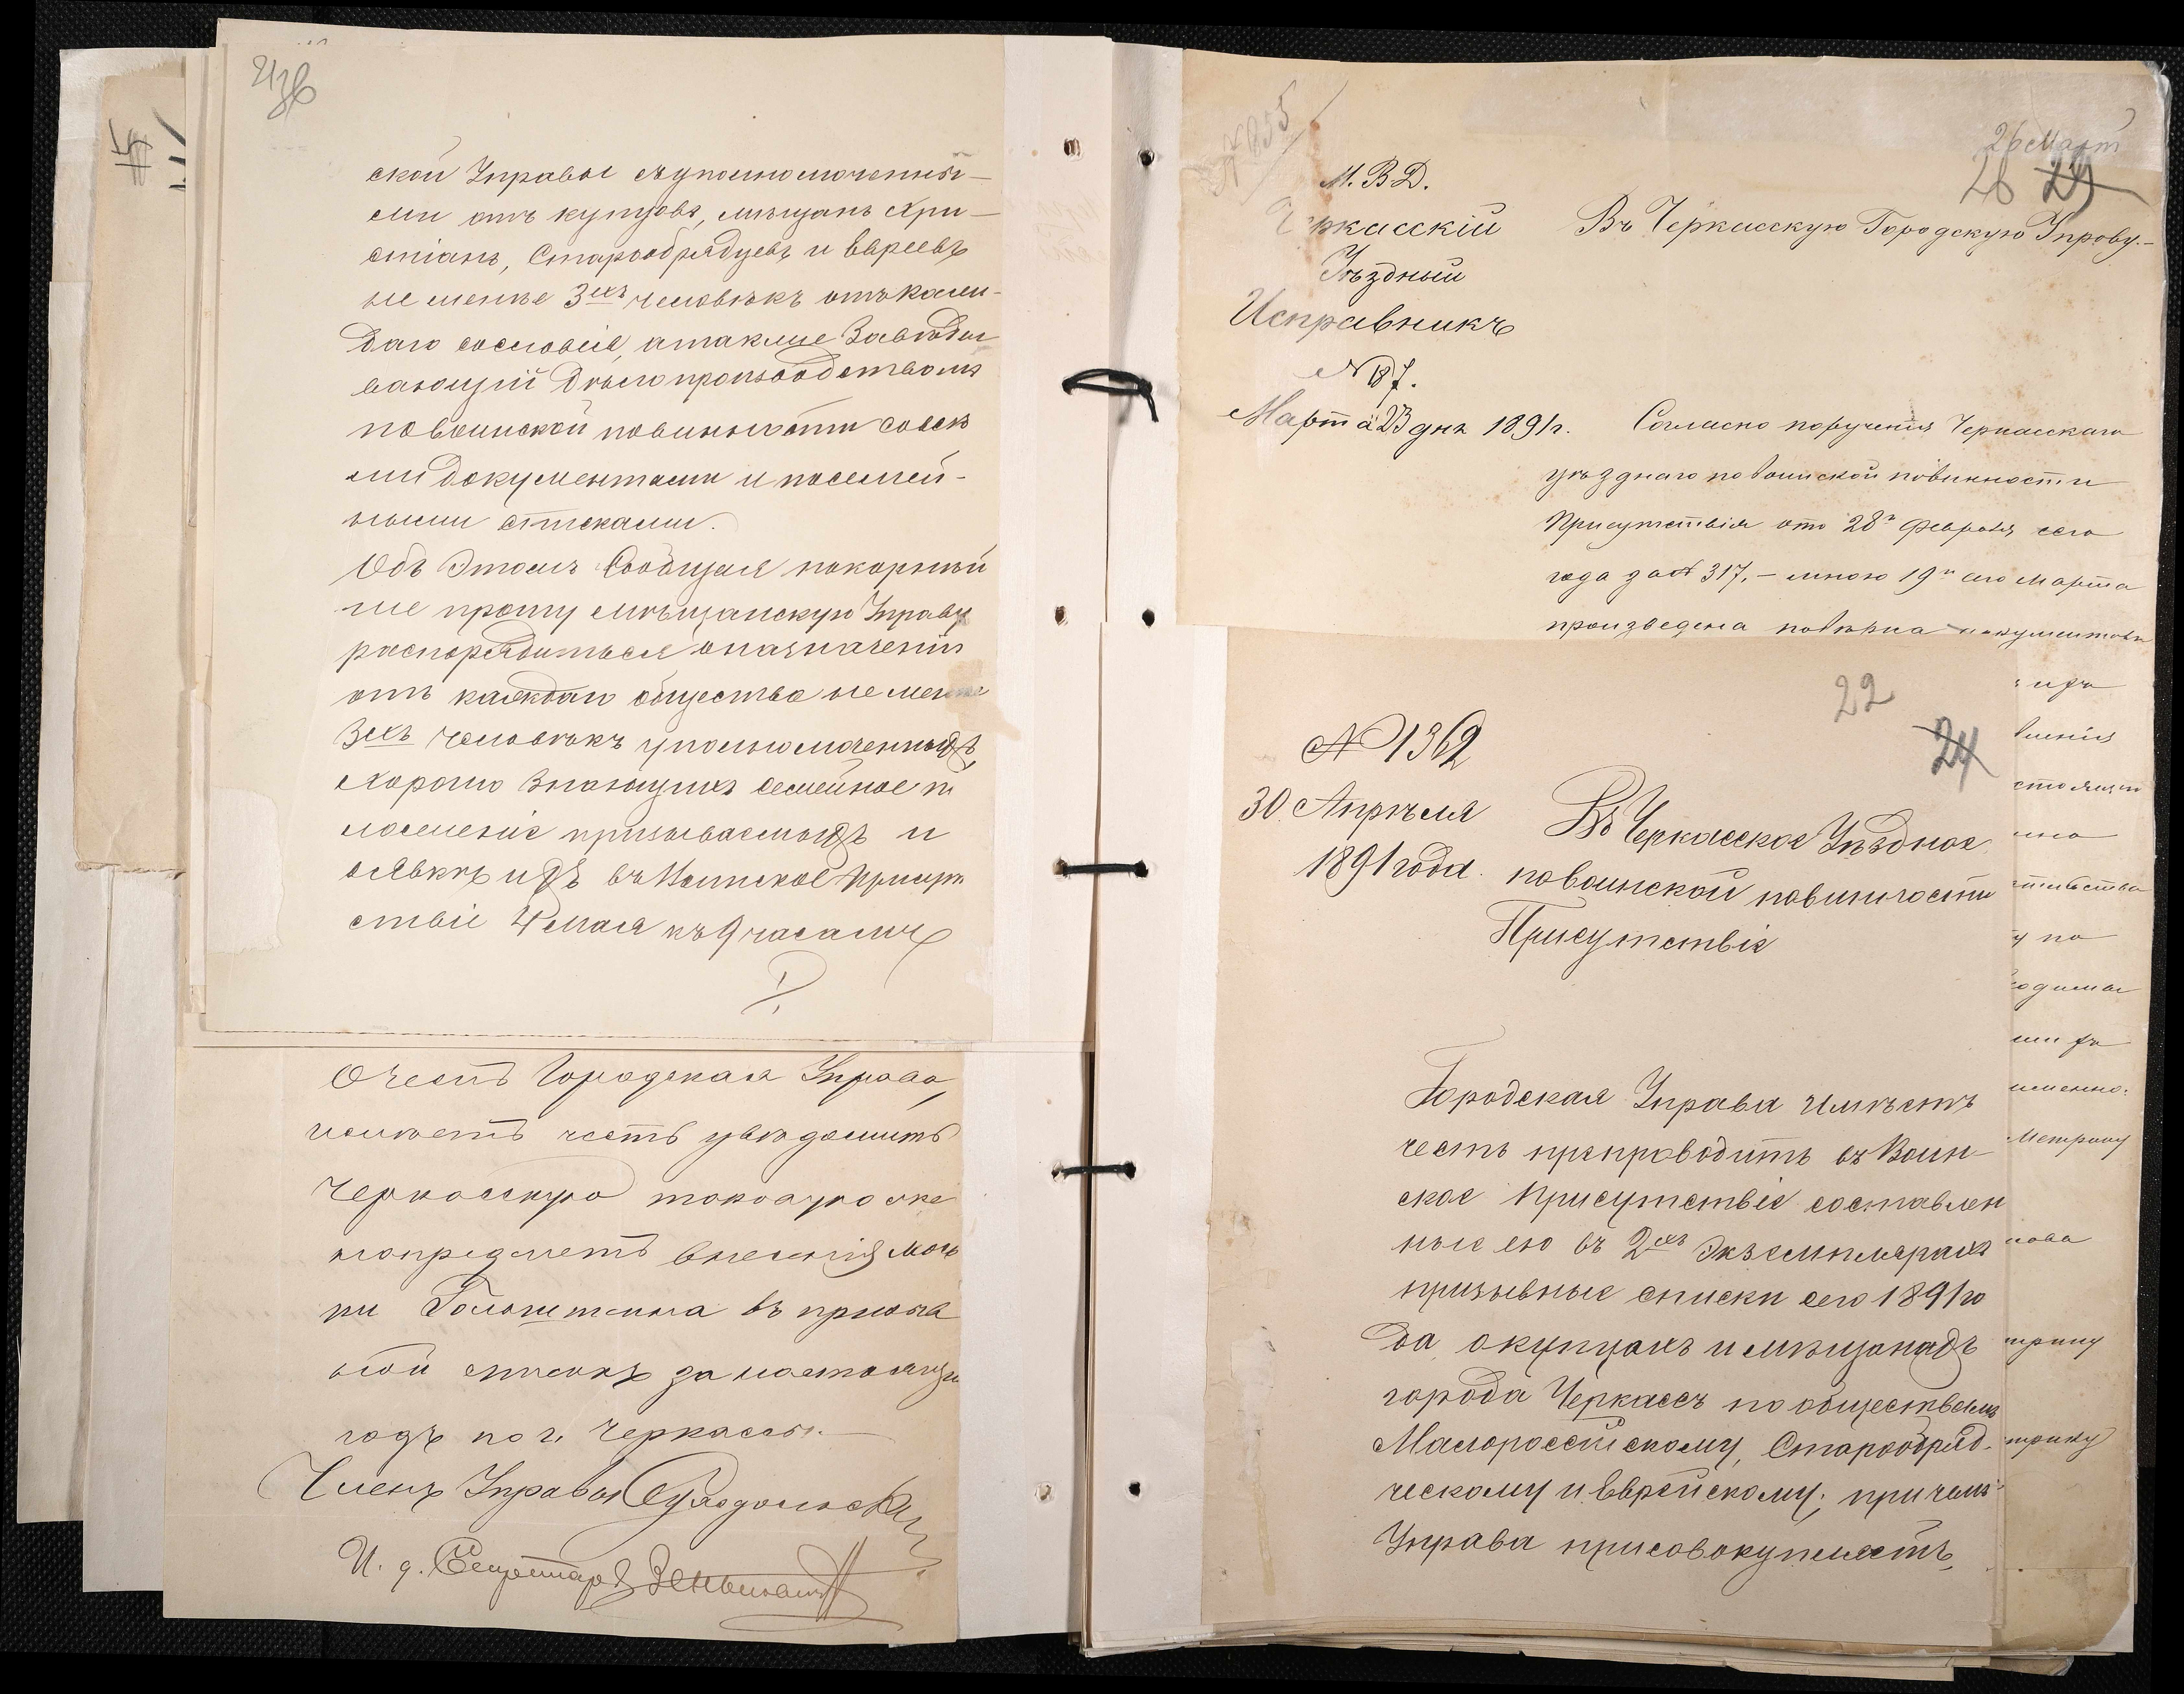 ской Управы съ уполномоченны-
ми отъ купцовъ, мѣщанъ Хри-
стіанъ, Старообрядцевъ и Евреевъ
не менѣе 3хъ человѣкъ отъ каж-
даго сословія, а также Завѣды
вающій дѣлопроизводствомъ
по воинской повинности со всѣ
ми документами и посемей-
ными списками.
Объ этомъ Сообщая покорнѣй
ше прошу мѣщанскую Управу
распорядиться о назначеніи
отъ каждаго общества не менѣе
3хъ человѣкъ уполномоченныхъ,
хорошо знающихъ семейное по
ложеніе призываемыхъ и
о явкѣ ихъ въ Воинское Присут
ствіе 4 мая къ 9 часамъ
О чемъ Городская Управа,
имѣетъ честь увѣдомить
Черкасскую таковую же
на предметъ внесенія Мош
ки Гольштейна въ призыв
ной списокъ за настоящій
годъ по г. Черкассы.
Членъ Управы
И. д. Секретаря
№ 855
26 Март
26 29
М. В. Д.
Черкасскій
Уѣздный
Исправникъ
№ 187.
Марта 23 дня 1891 г.
Въ Черкасскую Городскую Управу.-
Согласно порученія Черкасскаго
уѣзднаго по воинской повинности
Присутствія отъ 28го Февраля сего
года за № 317, - мною 19го сего Марта
произведена повѣрка документовъ
22
24
№ 1362
30. Апрѣля
1891 года.
Въ Черкасское Уѣздное
по воинской повинности
Присутствіе
Городская Управа имѣетъ
честь препроводить въ Воин-
ское Присутствіе составлен
ные ею въ 2хъ экземплярахъ
призывные списки сего 1891 го
да о купцахъ и мѣщанахъ
города Черкассъ по обществамъ
Малороссійскому, Старообряд-
ческому и Еврейскому; при чемъ
Управа присовокупляетъ,
ихъ
именно:
Метрику
трику